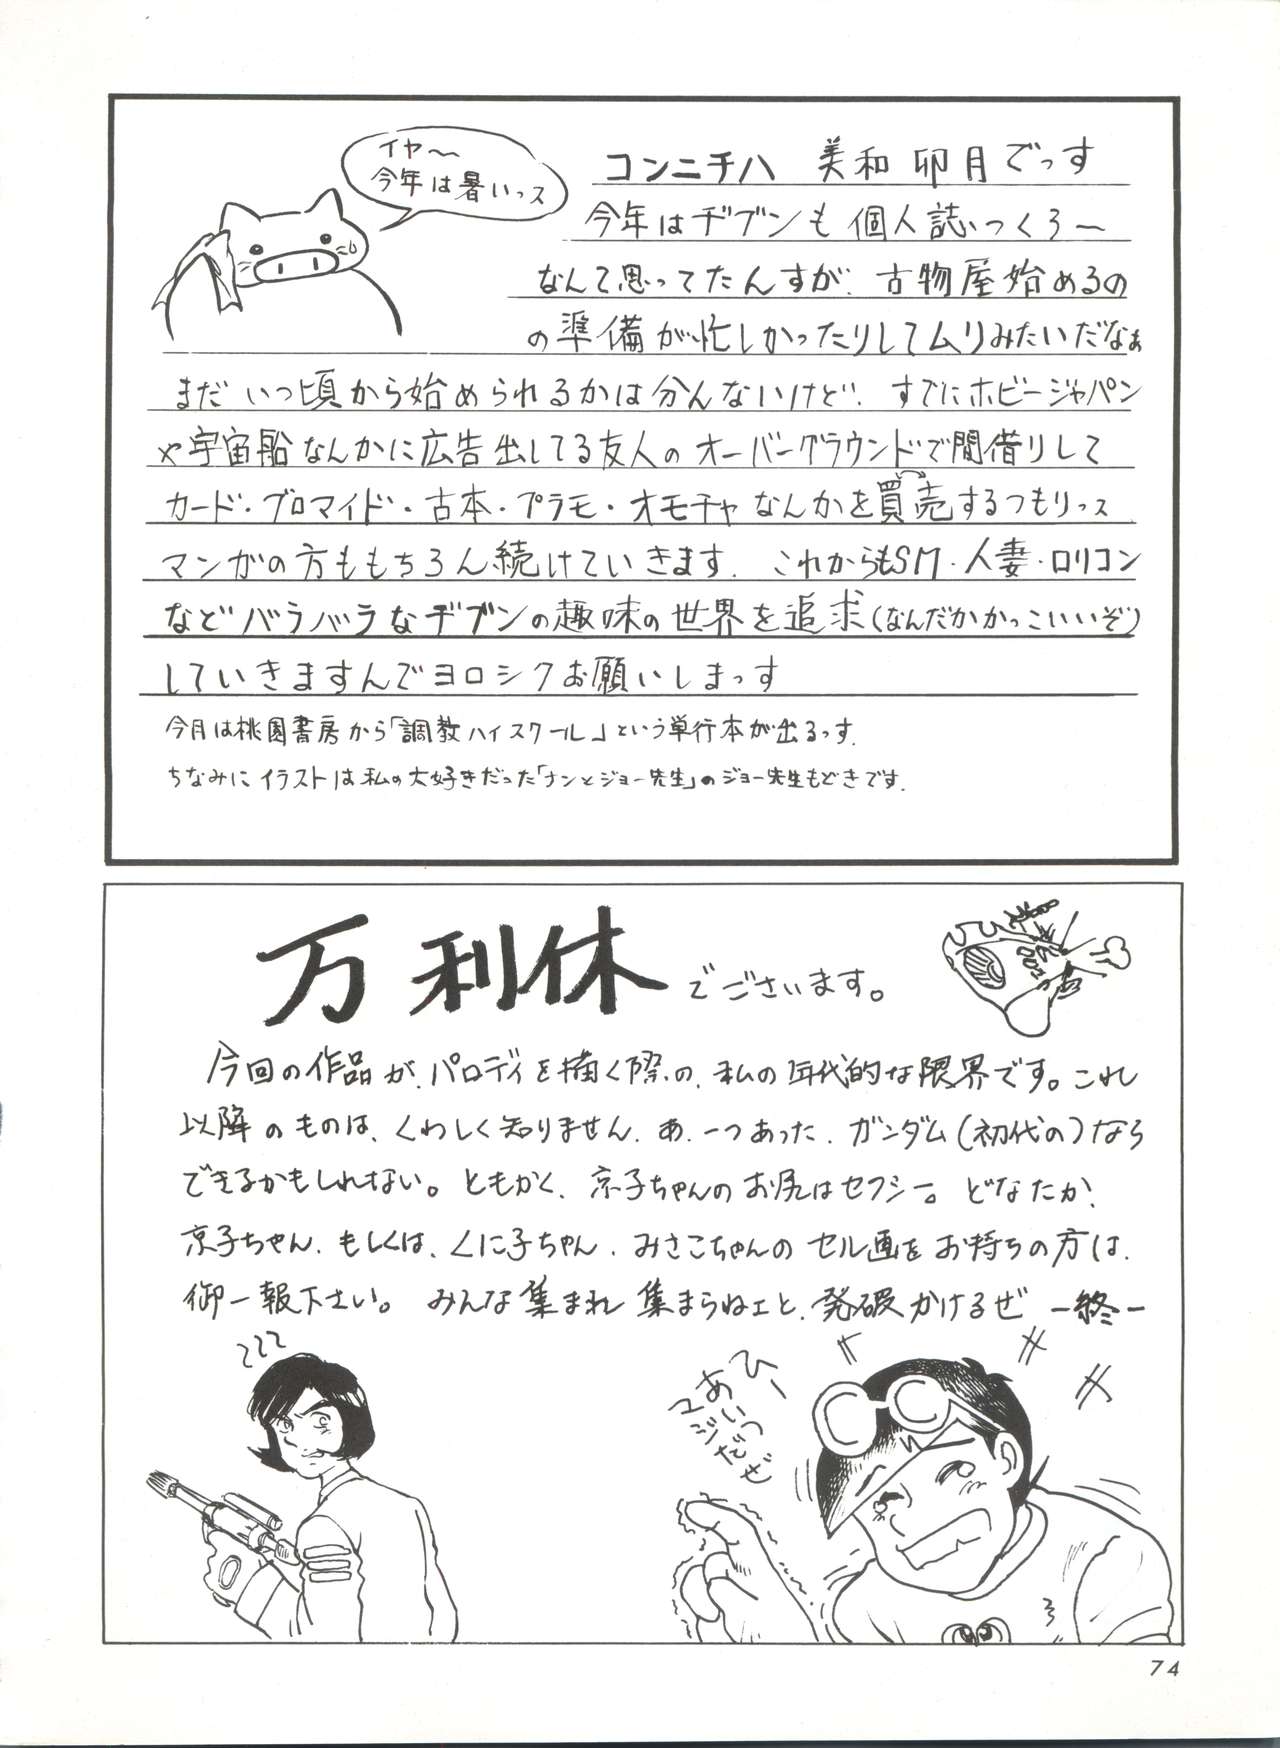 イヤ〜
今年は暑いっス
コンニチハ 美和卯月でっす
今年はヂブンも個人誌いつくろ〜
なんて思ってたんすが、古物屋始めるの
の準備が忙しかったりしてムリみたいだなぁ
まだいつ頃から始められるかは分んないけど、すでにホビージャパン
や宇宙船なんかに広告出してる友人のオーバーグラウンドで間借りして
カード・ブロマイド・古本・プラモ・オモチャなんかを買売するつもりっス
マンガの方ももちろん続けていきます. これからもSM・人妻・ロリコン
などバラバラなヂブンの趣味の世界を追求(なんだかかっこいいぞ)
していきますんでヨロシクお願いしまっす
今月は桃園書房から「調教ハイスクール」という単行本が出るっす.
ちなみにイラストは私の大好きだった「ナンとジョー先生」のジョー先生もどきです.
万利休でございます。
今回の作品が、パロディを描く際の、私の年代的な限界です。これ
以降のものは、くわしく知りません、あ、一つあった、ガンダム(初代の)なら
できるかもしれない。ともかく、京子ちゃんのお尻はセクシー。どなたか、
京子ちゃん、もしくは、くに子ちゃん、みさこちゃんのセル画をお持ちの方は、
御一報下さい。みんな集まれ 集まらねェと、発破かけるぜ ー終ー
ひー
あいつ
マジだぜ
74